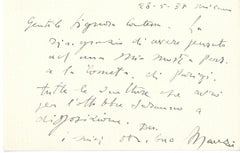 26-5-58 Milano
Gentile Signora Contessa. La
ringrazio di avere pensato
ad una mia mostra pers.
a la Cometa. di Parigi.
tutte le sculture che avrò
per l'ottobre saranno a
disposizione.
i miei